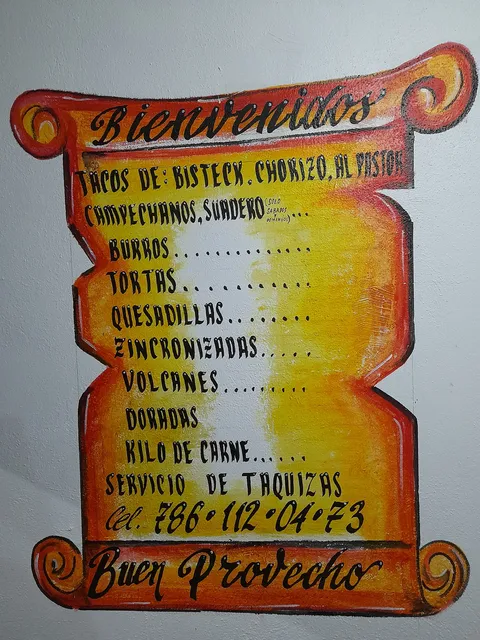 Bienvenidos
TACOS DE: BISTECK. CHORIZO, AL PASTOR
CAMPECHANOS, SUADERO (SOLO SABADOS Y DOMINGOS)...
BURROS..............
TORTAS............
QUESADILLAS........
ZINCRONIZADAS.....
VOLCANES.........
DORADAS
KILO DE CARNE......
SERVICIO DE TAQUIZAS
Cel. 786•112•04•73
Buen Provecho